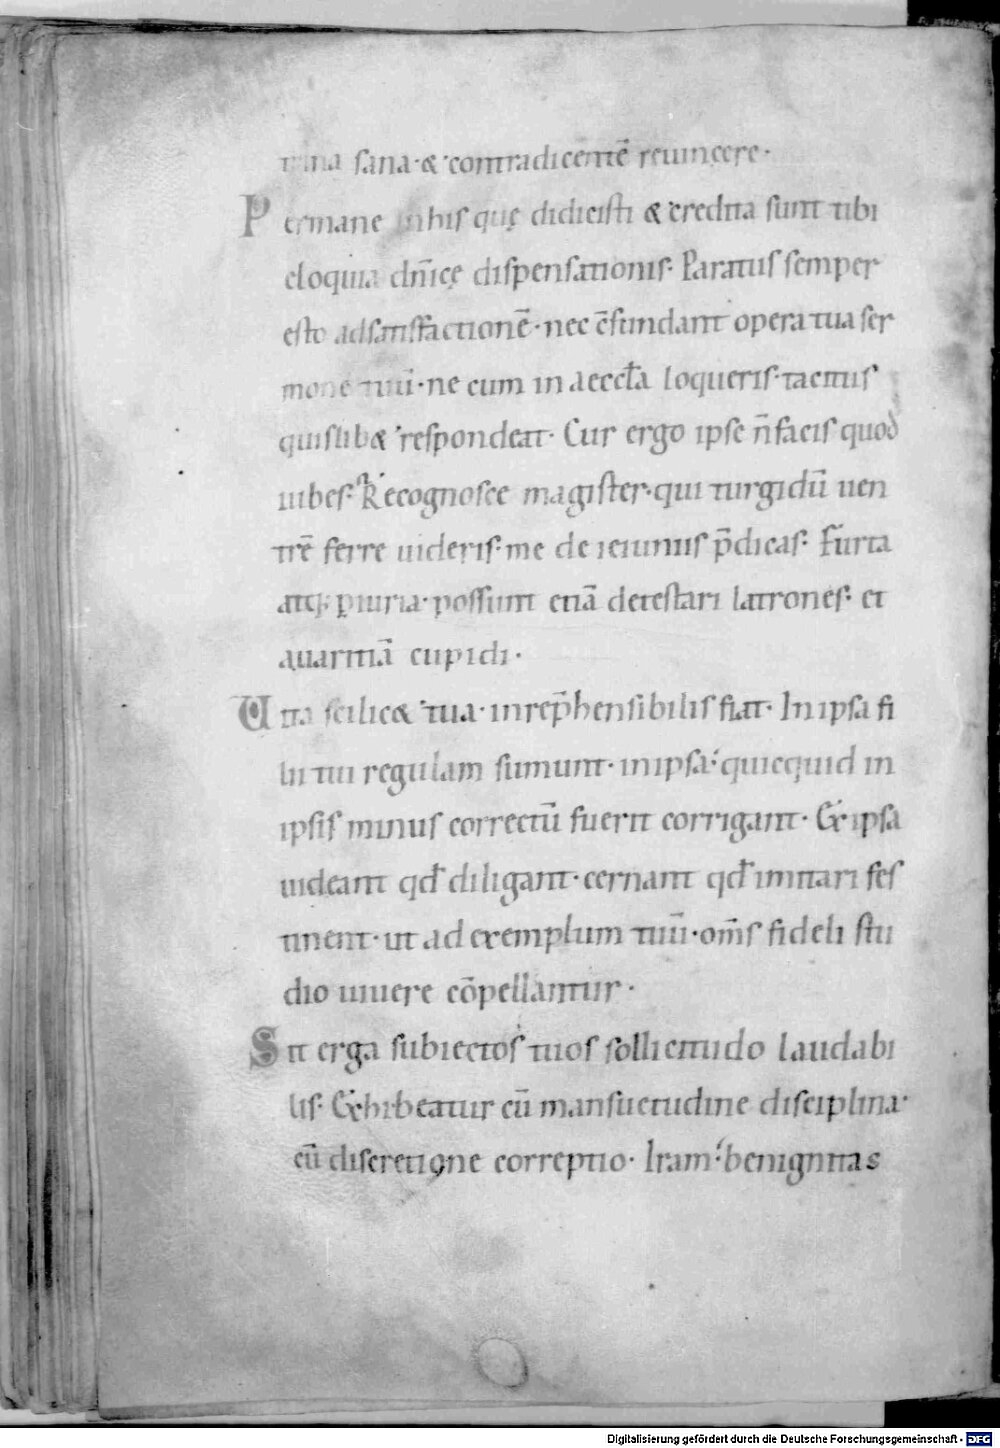 trina sana · & contradicentē reuincere ·
Permane in his quę didicisti & credita sunt tibi
eloquia dn̄icę dispensationis · Paratus semper
esto ad satisfactionē · nec c̄fundant opera tua ser
monē tuū · ne cum in aeccła loqueris · tacitus
quislib& respondeat · Cur ergo ipse n̄ facis quod
iubes · Recognosce magister · qui turgidū uen
trē ferre uideris · me de ieiuniis p̄dicas · Furta
atq; ꝑiuria · possunt etiā detestari latrones · et
auaritiā cupidi ·
Uita scilic& tua · inrep̄hensibilis fiat · In ipsa fi
lii tui regulam sumunt · in ipsa · quicquid in
ipsis minus correctū fuerit corrigant · Ex ipsa
uideant qđ diligant · cernant qđ imitari fes
tinent · ut ad exemplum tuū · om̄s fideli stu
dio uiuere cōpellantur ·
Sit erga subiectos tuos sollicitudo laudabi
lis · Exhibeatur cū mansuetudine disciplina ·
cū discretione correptio · Iram · benignitas
Digitalisierung gefördert durch die Deutsche Forschungsgemeinschaft - DFG